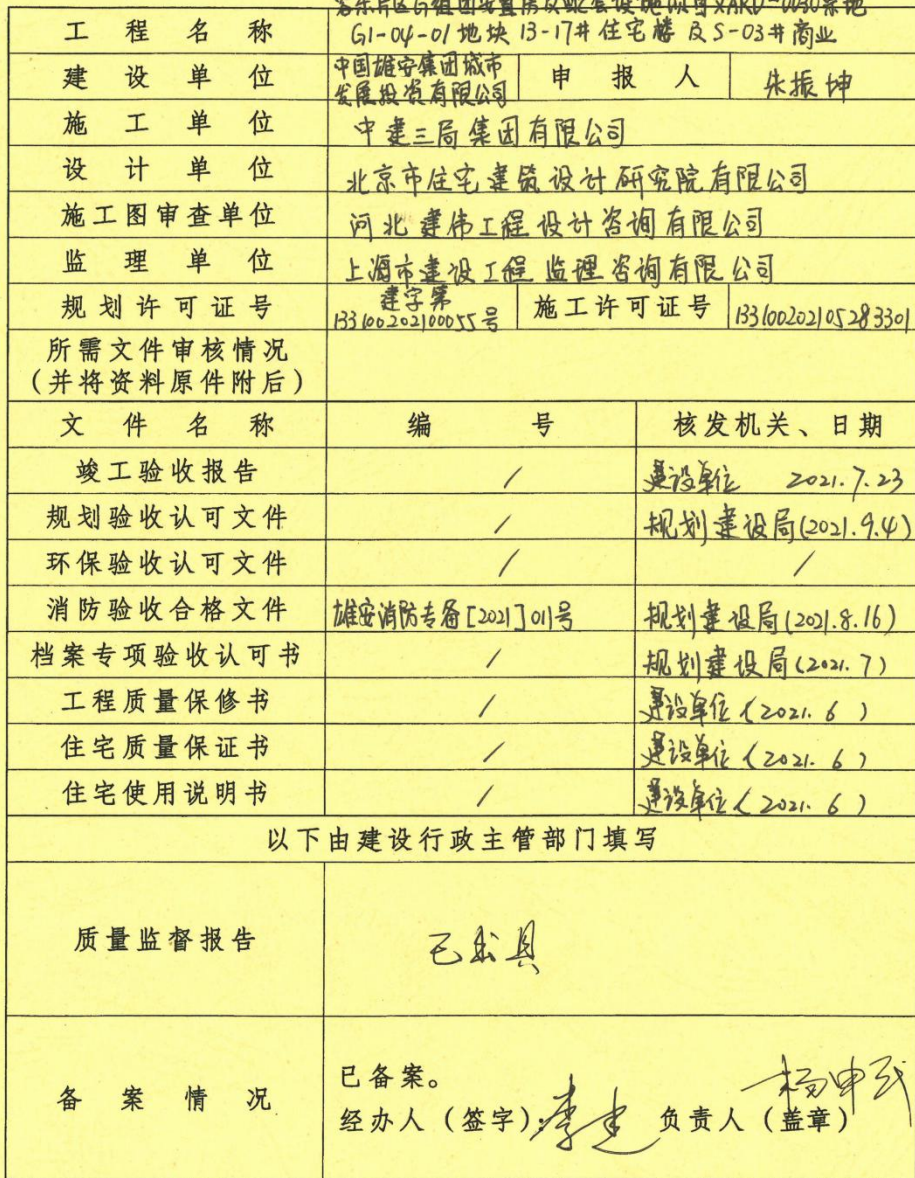 容东片区G组团安置房及配套设施项目XARD-0030宗地
工程名称 G1-04-01地块13-17#住宅楼及S-03#商业
建设单位 中国雄安集团城市
发展投资有限公司 申报人 朱振坤
施工单位 中建三局集团有限公司
设计单位 北京市住宅建筑设计研究院有限公司
施工图审查单位 河北建伟工程设计咨询有限公司
监理单位 上海市建设工程监理咨询有限公司
规划许可证号 建字第
133100202100055号 施工许可证号 133100202105283301
所需文件审核情况
(并将资料原件附后)
文件名称 编号 核发机关、日期
竣工验收报告 / 建设单位 2021.7.23
规划验收认可文件 / 规划建设局(2021.9.4)
环保验收认可文件 / /
消防验收合格文件 雄安消防专备[2021]011号 规划建设局(2021.8.16)
档案专项验收认可书 / 规划建设局(2021.7)
工程质量保修书 / 建设单位(2021.6)
住宅质量保证书 / 建设单位(2021.6)
住宅使用说明书 / 建设单位(2021.6)
以下由建设行政主管部门填写
质量监督报告 已出具
备案情况 已备案。
经办人(签字): 负责人(盖章)